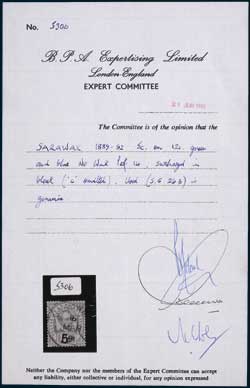 No. 5306
B. P. A. Expertising Limited
London-England
EXPERT COMMITTEE
The Committee is of the opinion that the
SARAWAK 1889-92 5c. on 12c. green
and blue No Wmk Perf 14, surcharged in
black ("C" omitted). Used (S.G. 26b) is
genuine
5306
5
Neither the Company nor the members of the Expert Committee can accept
any liability, either collective or individual, for any opinion expressed